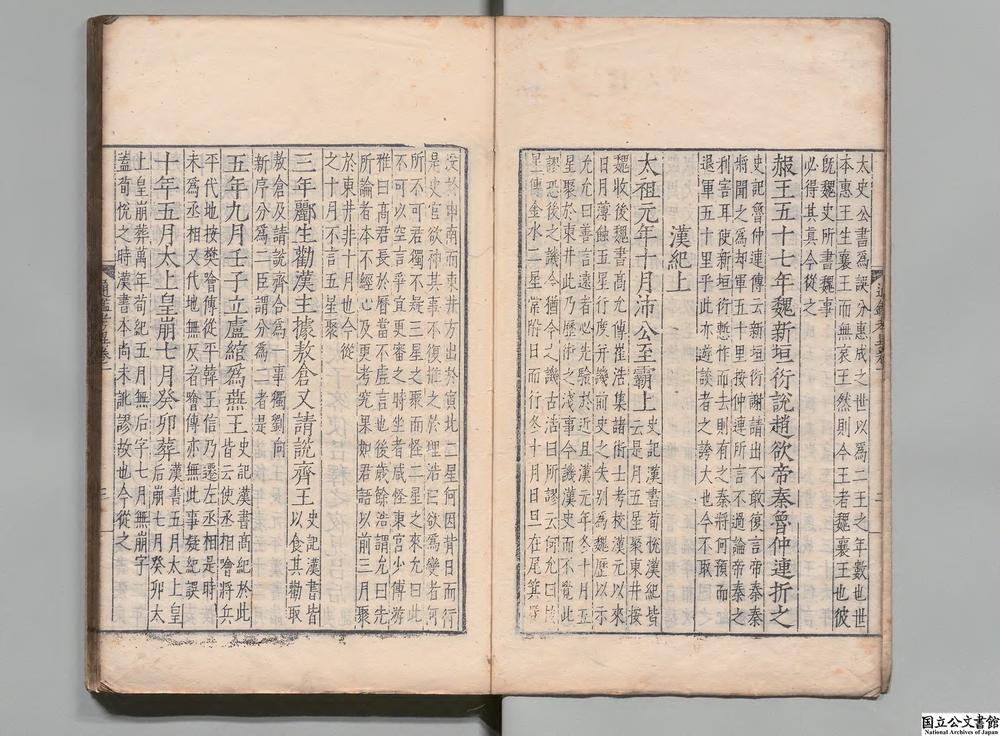 太史公書爲誤分惠成之世以爲二王之年數也世
本惠王生襄王而無哀王然則今王者魏襄王也彼
旣魏史所書魏事
必得其真今從之
赧王五十七年魏新垣衍說趙欲帝秦魯仲連折之
史記魯仲連傳云新垣衍謝請出不敢復言帝秦秦
將聞之爲却軍五十里按仲連所言不過論帝秦之
利害耳使新垣衍慙怍而去則有之秦將何預而
退軍五十里乎此亦遊談者之誇大也今不取
漢紀上
太祖元年十月沛公至霸上
史記漢書荀悅漢紀皆
云是月五星聚東井按
魏收後魏書高允傳崔浩集諸術士考校漢元以來
日月薄蝕五星行度并譏前史之失別爲魏歷以示
允允曰善言遠者必先驗於近且漢元年冬十月五
星聚於東井此乃歷術之淺事今譏漢史而不覺此
謬恐後之譏今猶今之譏古浩曰所謬云何允曰按
星傳金水二星常附日而行冬十月日旦在尾箕
沒於申南而東井方出於寅北二星何因背日而行
是史官欲神其事不復推之於理浩曰欲爲變者何
所不可君獨不疑三星之聚而怪二星之來允曰此
不可以空言爭宜更審之時坐者咸怪東宮少傅游
雅曰高君長於曆當不虛言也後歲餘浩謂允曰先
所論者本不經心及更考究果如君語以前三月聚
於東井非十月也今從
之十月不言五星聚
三年酈生勸漢王據敖倉又請說齊王
史記漢書皆
以食其勸取
敖倉及請說齊合爲一事獨劉向
新序分爲二臣謂分爲二者是
五年九月壬子立盧綰爲燕王
史記漢書高紀於此
皆云使丞相噲將兵
平代地按樊噲傳從平韓王信乃遷左丞相是時
未爲丞相又代地無反者噲傳亦無此事疑紀誤
十年五月太上皇崩七月癸卯葬
漢書五月太上皇
后崩七月癸卯太
上皇崩葬萬年荀紀五月無后字七月無崩字
蓋荀悅之時漢書本尚未訛謬故也今從之
通鑑考異卷一
二
通鑑考異卷一
三
国立公文書館
National Archives of Japan